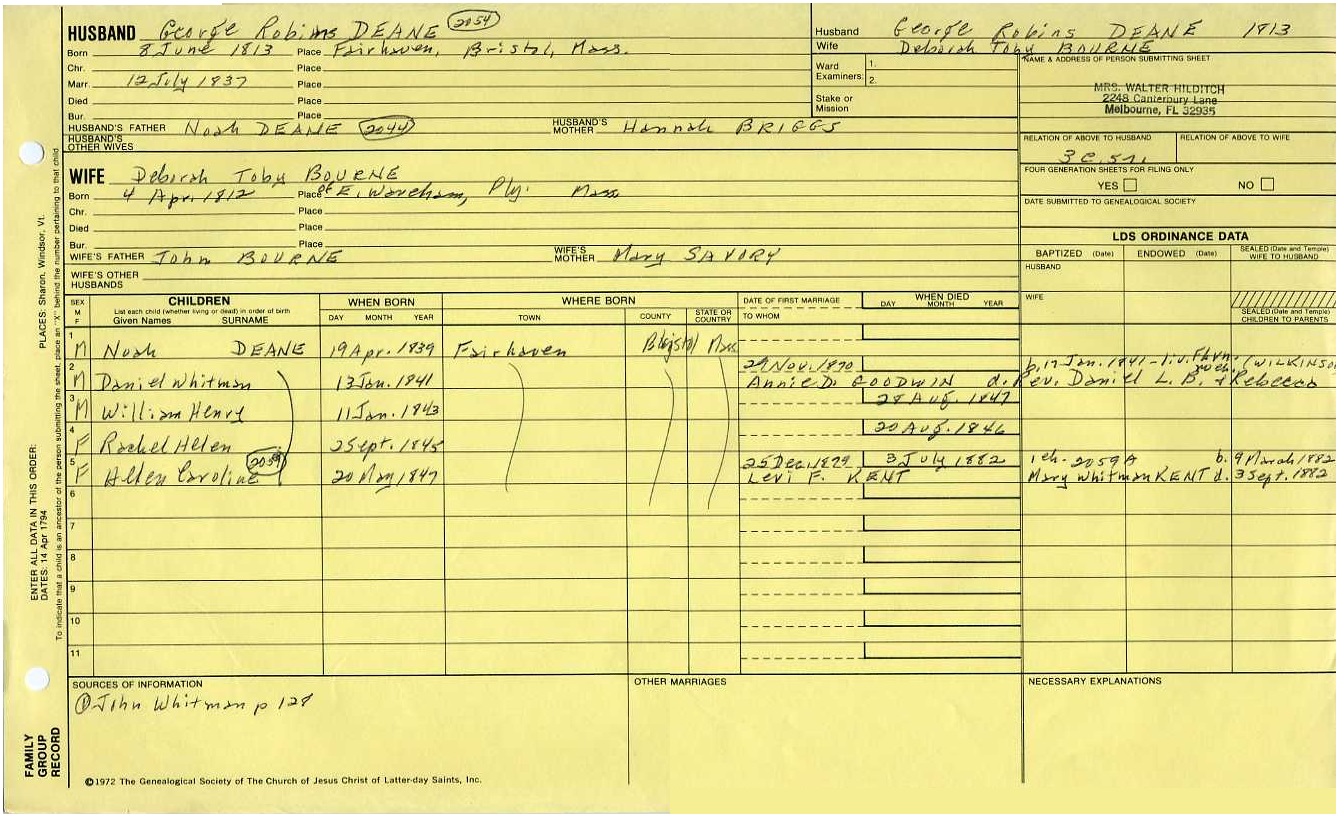 HUSBAND George Robins DEANE 2054
Born 8 June 1813 Place Fairhaven, Bristol, Mass.
Chr. Place
Marr. 12 July 1837 Place
Died Place
Bur. Place
HUSBAND'S FATHER Noah DEANE 2044 HUSBAND'S MOTHER Hannah BRIGGS
HUSBAND'S OTHER WIVES
Husband George Robins DEANE 1813
Wife Deborah Toby BOURNE
Ward 1.
Examiners: 2.
Stake or Mission
NAME & ADDRESS OF PERSON SUBMITTING SHEET
MRS. WALTER HILDITCH
2248 Canterbury Lane
Melbourne, FL 32935
RELATION OF ABOVE TO HUSBAND RELATION OF ABOVE TO WIFE
3 C. 5 r.
FOUR GENERATION SHEETS FOR FILING ONLY
YES NO
DATE SUBMITTED TO GENEALOGICAL SOCIETY
WIFE Deborah Toby BOURNE
Born 4 Apr. 1812 Place of E. Wareham, Ply. Mass
Chr. Place
Died Place
Bur. Place
WIFE'S FATHER John BOURNE WIFE'S MOTHER Mary SAVORY
WIFE'S OTHER HUSBANDS
LDS ORDINANCE DATA
BAPTIZED (Date) ENDOWED (Date) SEALED (Date and Temple) WIFE TO HUSBAND
HUSBAND
WIFE
SEALED (Date and Temple) CHILDREN TO PARENTS
SEX M F CHILDREN WHEN BORN WHERE BORN DATE OF FIRST MARRIAGE WHEN DIED
List each child (whether living or dead) in order of birth
Given Names SURNAME DAY MONTH YEAR TOWN COUNTY STATE OR COUNTRY TO WHOM DAY MONTH YEAR
1 M Noah DEANE 19 Apr. 1839 Fairhaven Bristol Mass
29 Nov. 1870 b. 17 Jan. 1841 - liv. Fhvn. (WILKINSON
2 M Daniel Whitman 13 Jan. 1841 Annie D. GOODWIN d. Rev. Daniel L. B. & Rebecca
3 M William Henry 11 Jan. 1843 28 Aug. 1847
4 F Rachel Allen 2 Sept. 1845 20 Aug. 1846
2059 25 Dec. 1879 3 July 1882 1 ch. - 2059A b. 9 March 1882
5 F Allen Caroline 20 May 1847 Levi F. KENT Mary Whitman KENT d. 3 Sept. 1882
6
7
8
9
10
11
SOURCES OF INFORMATION OTHER MARRIAGES NECESSARY EXPLANATIONS
① John Whitman p 128
©1972 The Genealogical Society of The Church of Jesus Christ of Latter-day Saints, Inc.
FAMILY GROUP RECORD
ENTER ALL DATA IN THIS ORDER: PLACES: Sharon, Windsor, Vt.
DATES: 14 Apr 1794
To indicate that a child is an ancestor of the person submitting the sheet, place an "X" behind the number pertaining to that child.